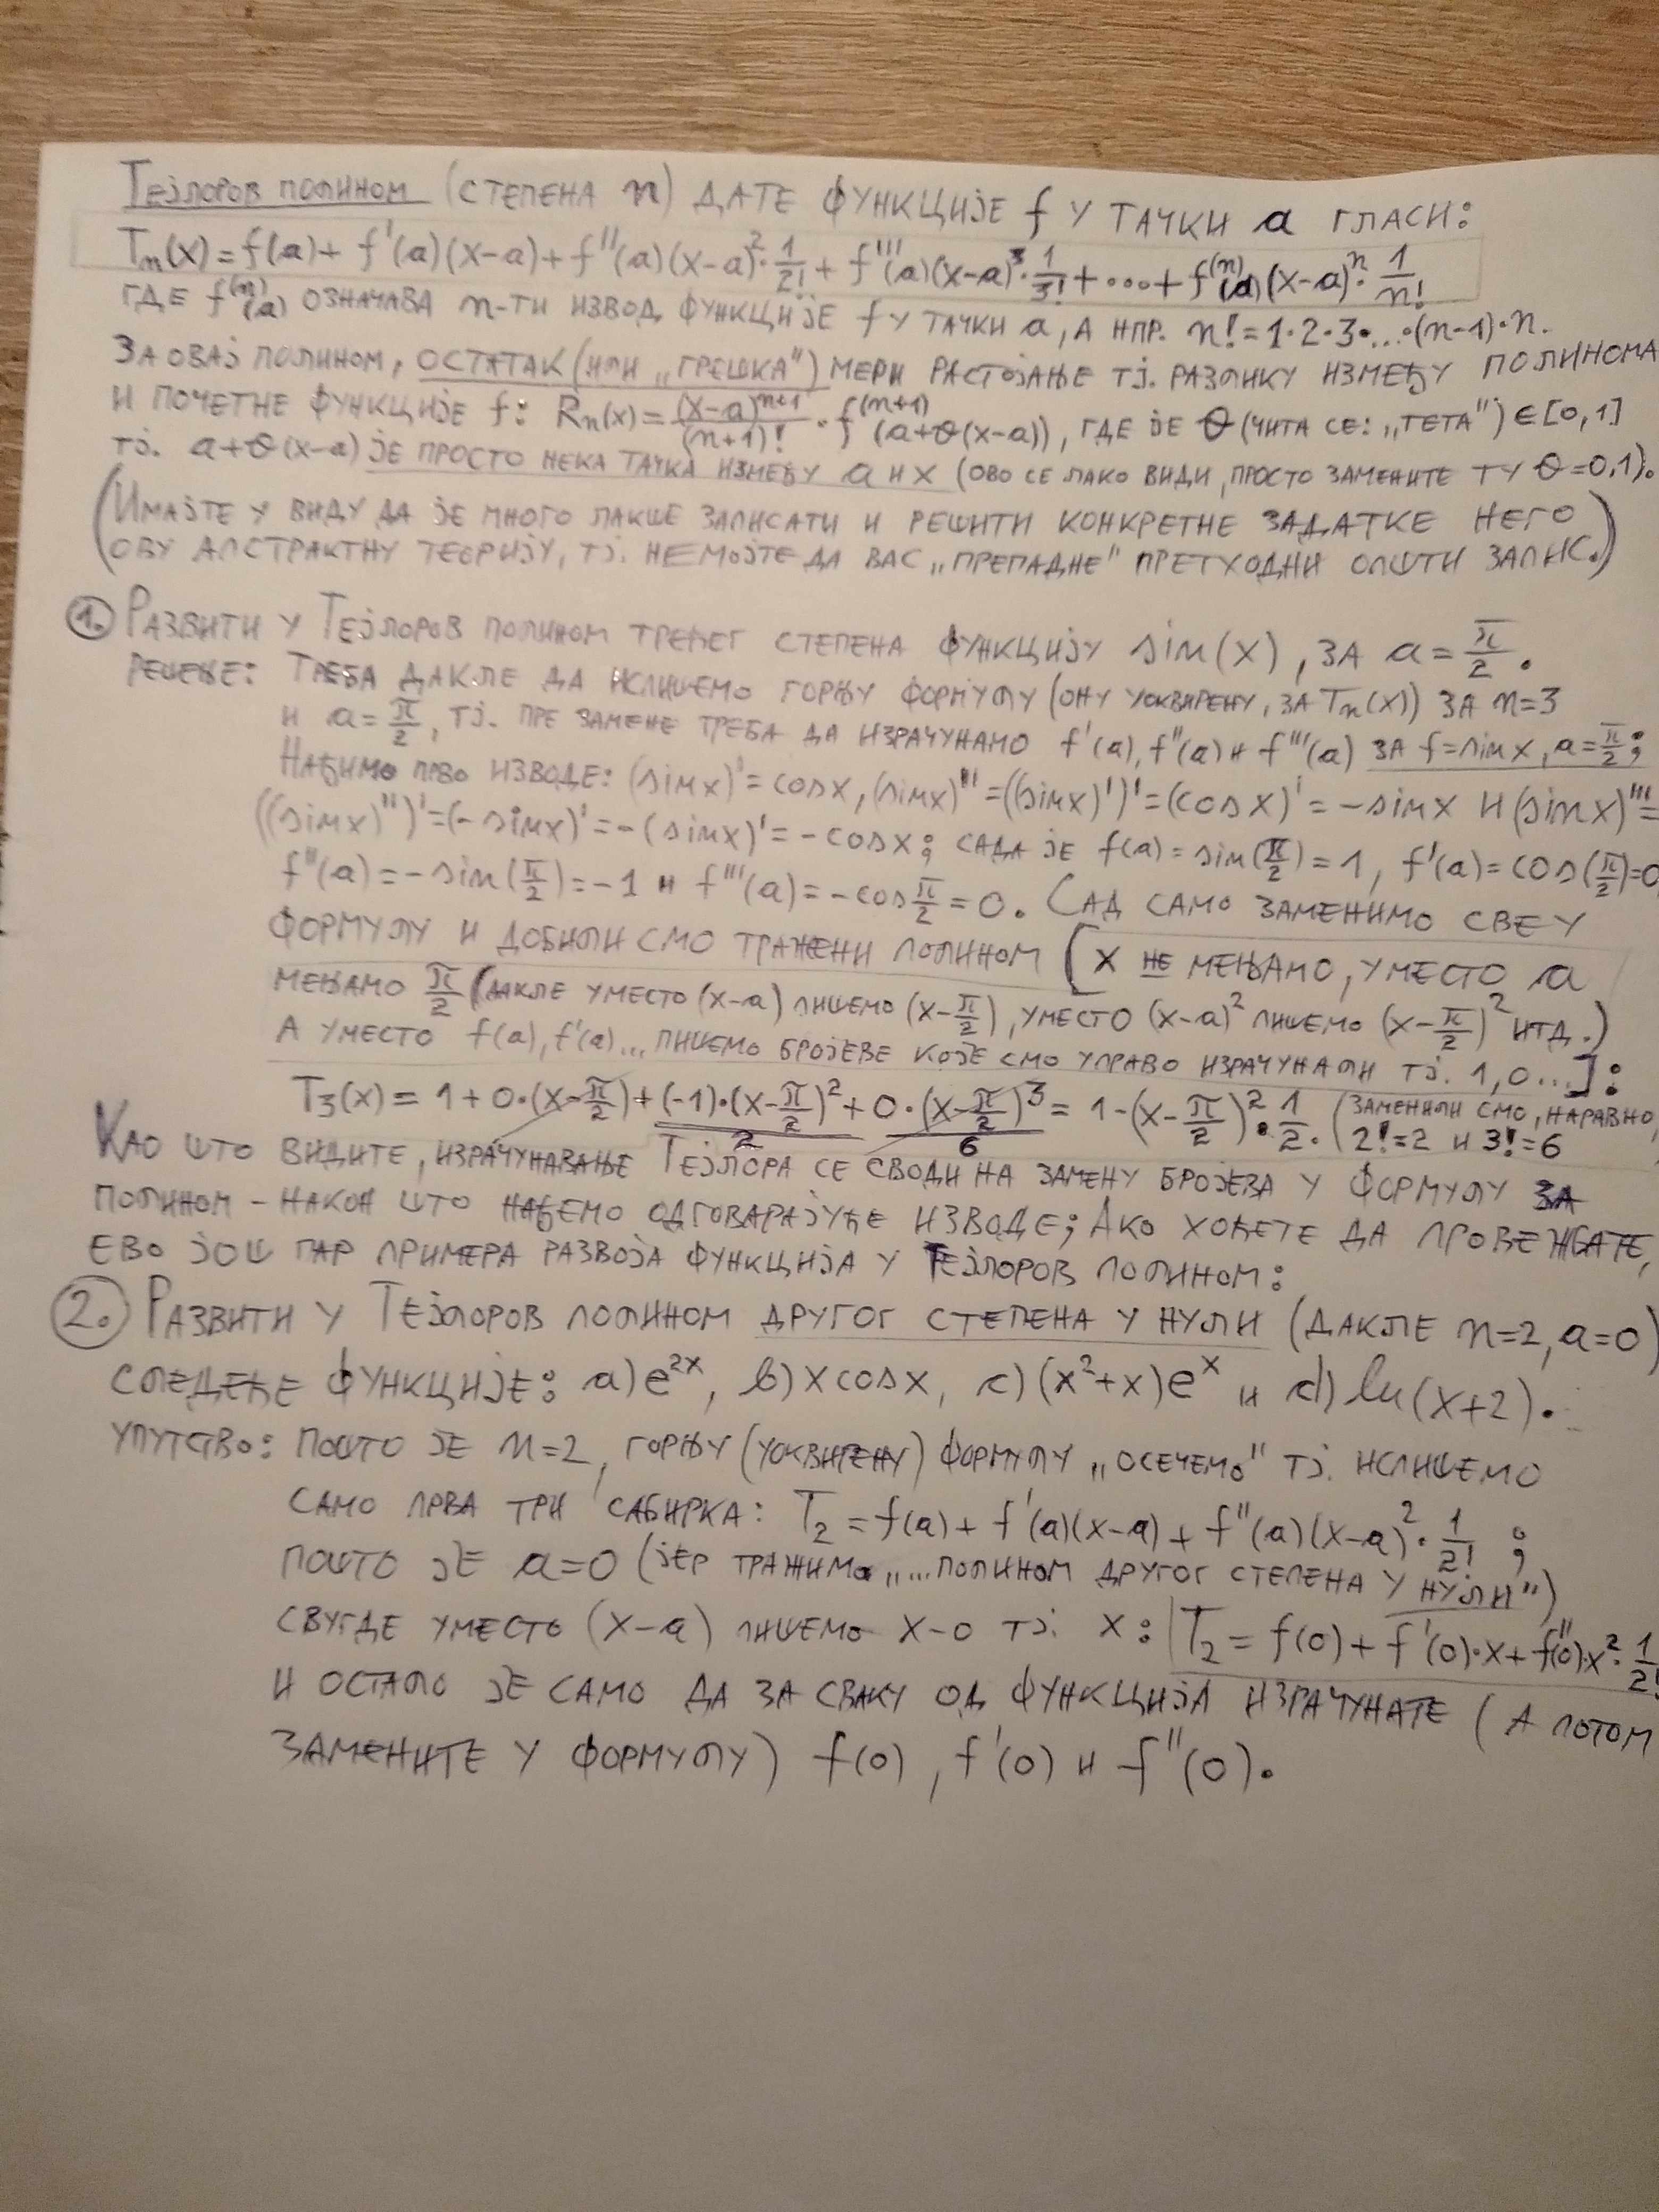 Тејлоров полином (степена n) дате функције f у тачки a гласи:
Tₙ(x) = f(a) + f'(a)(x-a) + f''(a)(x-a)²·1/2! + f'''(a)(x-a)³·1/3! + ... + f⁽ⁿ⁾(a)(x-a)ⁿ·1/n!
где f⁽ⁿ⁾(a) означава n-ти извод функције f у тачки a, а нпр. n! = 1·2·3·...·(n-1)·n.
За овај полином, остатак (или „грешка") мери растојање тј. разлику између полинома
и почетне функције f: Rₙ(x) = (x-a)ⁿ⁺¹/(n+1)! · f⁽ⁿ⁺¹⁾(a+θ(x-a)), где је θ (чита се: „тета") ∈ [0,1]
тј. a+θ(x-a) је просто нека тачка између a и x (ово се лако види, просто замените ту θ=0,1).
(Имајте у виду да је много лакше записати и решити конкретне задатке него
ову апстрактну теорију, тј. немојте да вас „препадне" претходни општи запис.)
1. Развити у Тејлоров полином трећег степена функцију sin(x), за a = π/2.
Решење: Треба дакле да испишемо горњу формулу (ону уоквирену, за Tₙ(x)) за n=3
и a = π/2, тј. пре замене треба да израчунамо f'(a), f''(a) и f'''(a) за f=sin x, a=π/2;
Нађимо прво изводе: (sin x)' = cos x, (sin x)'' = ((sin x)')' = (cos x)' = -sin x и (sin x)''' =
((sin x)'')' = (-sin x)' = -(sin x)' = -cos x; сада је f(a) = sin(π/2) = 1, f'(a) = cos(π/2) = 0,
f''(a) = -sin(π/2) = -1 и f'''(a) = -cos π/2 = 0. Сад само заменимо све у
формулу и добили смо тражени полином [x не мењамо, уместо a
мењамо π/2 (дакле уместо (x-a) пишемо (x-π/2), уместо (x-a)² пишемо (x-π/2)² итд.)
а уместо f(a), f'(a)... пишемо бројеве које смо управо израчунали тј. 1, 0...]:
T₃(x) = 1 + 0·(x-π/2) + (-1)·(x-π/2)²/2 + 0·(x-π/2)³/6 = 1-(x-π/2)²·1/2. (Заменили смо, наравно, 2!=2 и 3!=6
Као што видите, израчунавање Тејлора се своди на замену бројева у формулу за
полином - након што нађемо одговарајуће изводе; Ако хоћете да провежбате,
ево још пар примера развоја функција у Тејлоров полином:
2. Развити у Тејлоров полином другог степена у нули (дакле n=2, a=0)
следеће функције: a) e²ˣ, b) x cos x, c) (x²+x)eˣ и d) ln(x+2).
Упутство: Пошто је n=2, горњу (уоквирену) формулу „осечемо" тј. испишемо
само прва три сабирка: T₂ = f(a) + f'(a)(x-a) + f''(a)(x-a)²·1/2! ;
пошто је a=0 (јер тражимо „...полином другог степена у нули")
свугде уместо (x-a) пишемо x-0 тј. x: T₂ = f(0) + f'(0)·x + f''(0)·x²·1/2!
и остало је само да за сваку од функција израчунате (а потом
замените у формулу) f(0), f'(0) и f''(0).